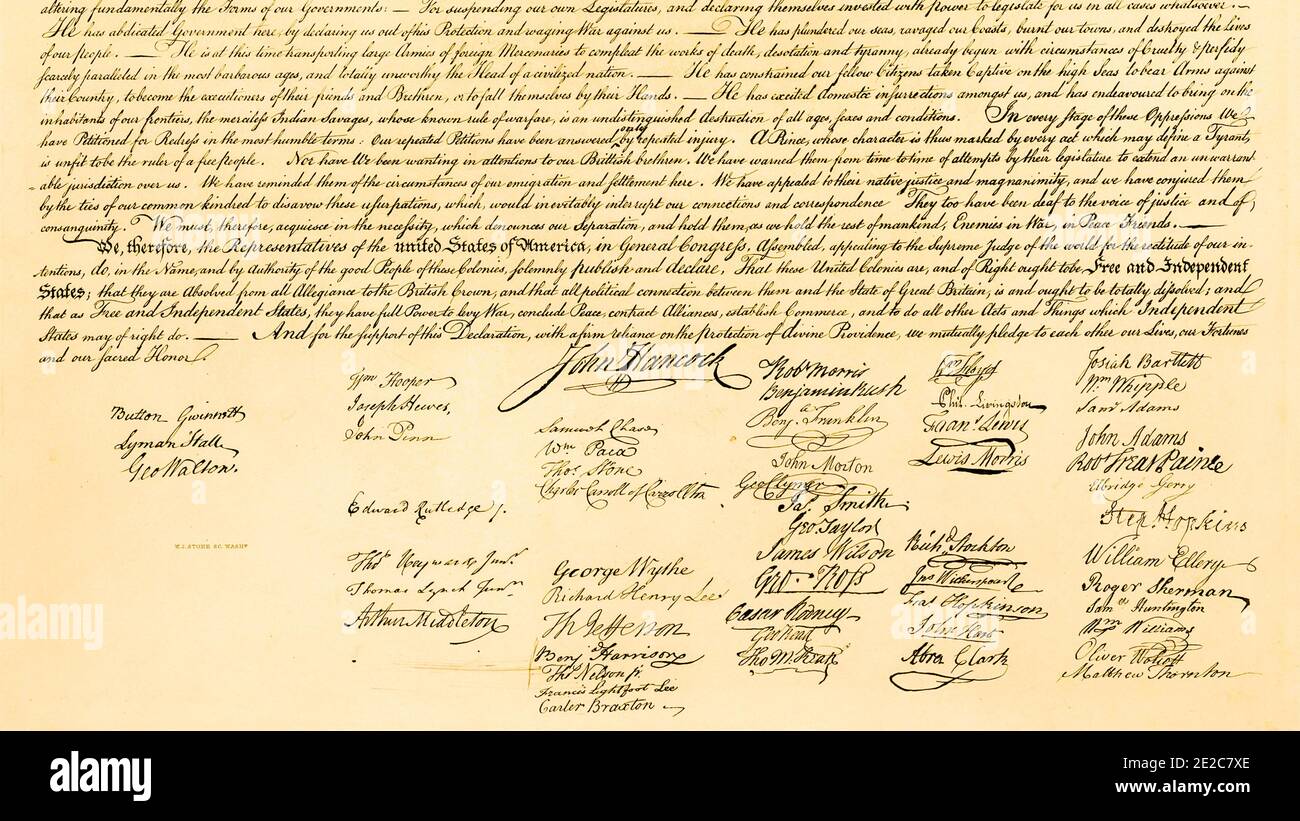 altering fundamentally the Forms of our Governments: — For suspending our own Legislatures, and declaring themselves invested with power to legislate for us in all cases whatsoever. —
He has abdicated Government here, by declaring us out of his Protection and waging War against us. — He has plundered our seas, ravaged our Coasts, burnt our towns, and destroyed the Lives
of our people. — He is at this time transporting large Armies of foreign Mercenaries to compleat the works of death, desolation and tyranny, already begun with circumstances of Cruelty & perfidy
scarcely paralleled in the most barbarous ages, and totally unworthy the Head of a civilized nation. — He has constrained our fellow Citizens taken Captive on the high Seas to bear Arms against
their Country, to become the executioners of their friends and Brethren, or to fall themselves by their Hands. — He has excited domestic insurrections amongst us, and has endeavoured to bring on the
inhabitants of our frontiers, the merciless Indian Savages, whose known rule of warfare, is an undistinguished destruction of all ages, sexes and conditions. In every stage of these Oppressions We
have Petitioned for Redress in the most humble terms: Our repeated Petitions have been answered only by repeated injury. A Prince, whose character is thus marked by every act which may define a Tyrant,
is unfit to be the ruler of a free people. Nor have We been wanting in attentions to our Brittish brethren. We have warned them from time to time of attempts by their legislature to extend an unwarrant
able jurisdiction over us. We have reminded them of the circumstances of our emigration and settlement here. We have appealed to their native justice and magnanimity, and we have conjured them
by the ties of our common kindred to disavow these usurpations, which, would inevitably interrupt our connections and correspondence They too have been deaf to the voice of justice and of
consanguinity. We must, therefore, acquiesce in the necessity, which denounces our Separation, and hold them, as we hold the rest of mankind, Enemies in War, in Peace Friends. —
We, therefore, the Representatives of the united States of America, in General Congress, Assembled, appealing to the Supreme Judge of the world for the rectitude of our in-
tentions, do, in the Name, and by Authority of the good People of these Colonies, solemnly publish and declare, That these United Colonies are, and of Right ought to be Free and Independent
States; that they are Absolved from all Allegiance to the British Crown, and that all political connection between them and the State of Great Britain, is and ought to be totally dissolved; and
that as Free and Independent States, they have full Power to levy War, conclude Peace, contract Alliances, establish Commerce, and to do all other Acts and Things which Independent
States may of right do. — And for the support of this Declaration, with a firm reliance on the protection of divine Providence, we mutually pledge to each other our Lives, our Fortunes
and our sacred Honor.
Button Gwinnett
Lyman Hall
Geo Walton.
W.J. STONE SC. WASHN
Wm Hooper
Joseph Hewes,
John Penn
Edward Rutledge /.
Thos Heyward Junr.
Thomas Lynch Junr.
Arthur Middleton
John Hancock
Samuel Chase
Wm Paca
Thos Stone
Charles Carroll of Carrollton
George Wythe
Richard Henry Lee
Th Jefferson
Benja Harrison
Thos Nelson jr.
Francis Lightfoot Lee
Carter Braxton
Robt Morris
Benjamin Rush
Benja Franklin
John Morton
Geo Clymer
Jas. Smith
Geo. Taylor
James Wilson
Geo. Ross
Caesar Rodney
Geo Read
Tho M:Kean
Wm Floyd
Phil. Livingston
Frans. Lewis
Lewis Morris
Richd. Stockton
Jno Witherspoon
Fras. Hopkinson
John Hart
Abra Clark
Josiah Bartlett
Wm. Whipple
Saml Adams
John Adams
Robt Treat Paine
Elbridge Gerry
Step. Hopkins
William Ellery
Roger Sherman
Saml Huntington
Wm. Williams
Oliver Wolcott
Matthew Thornton
alamy
alamy
Image ID: 2E2C7XE
www.alamy.com